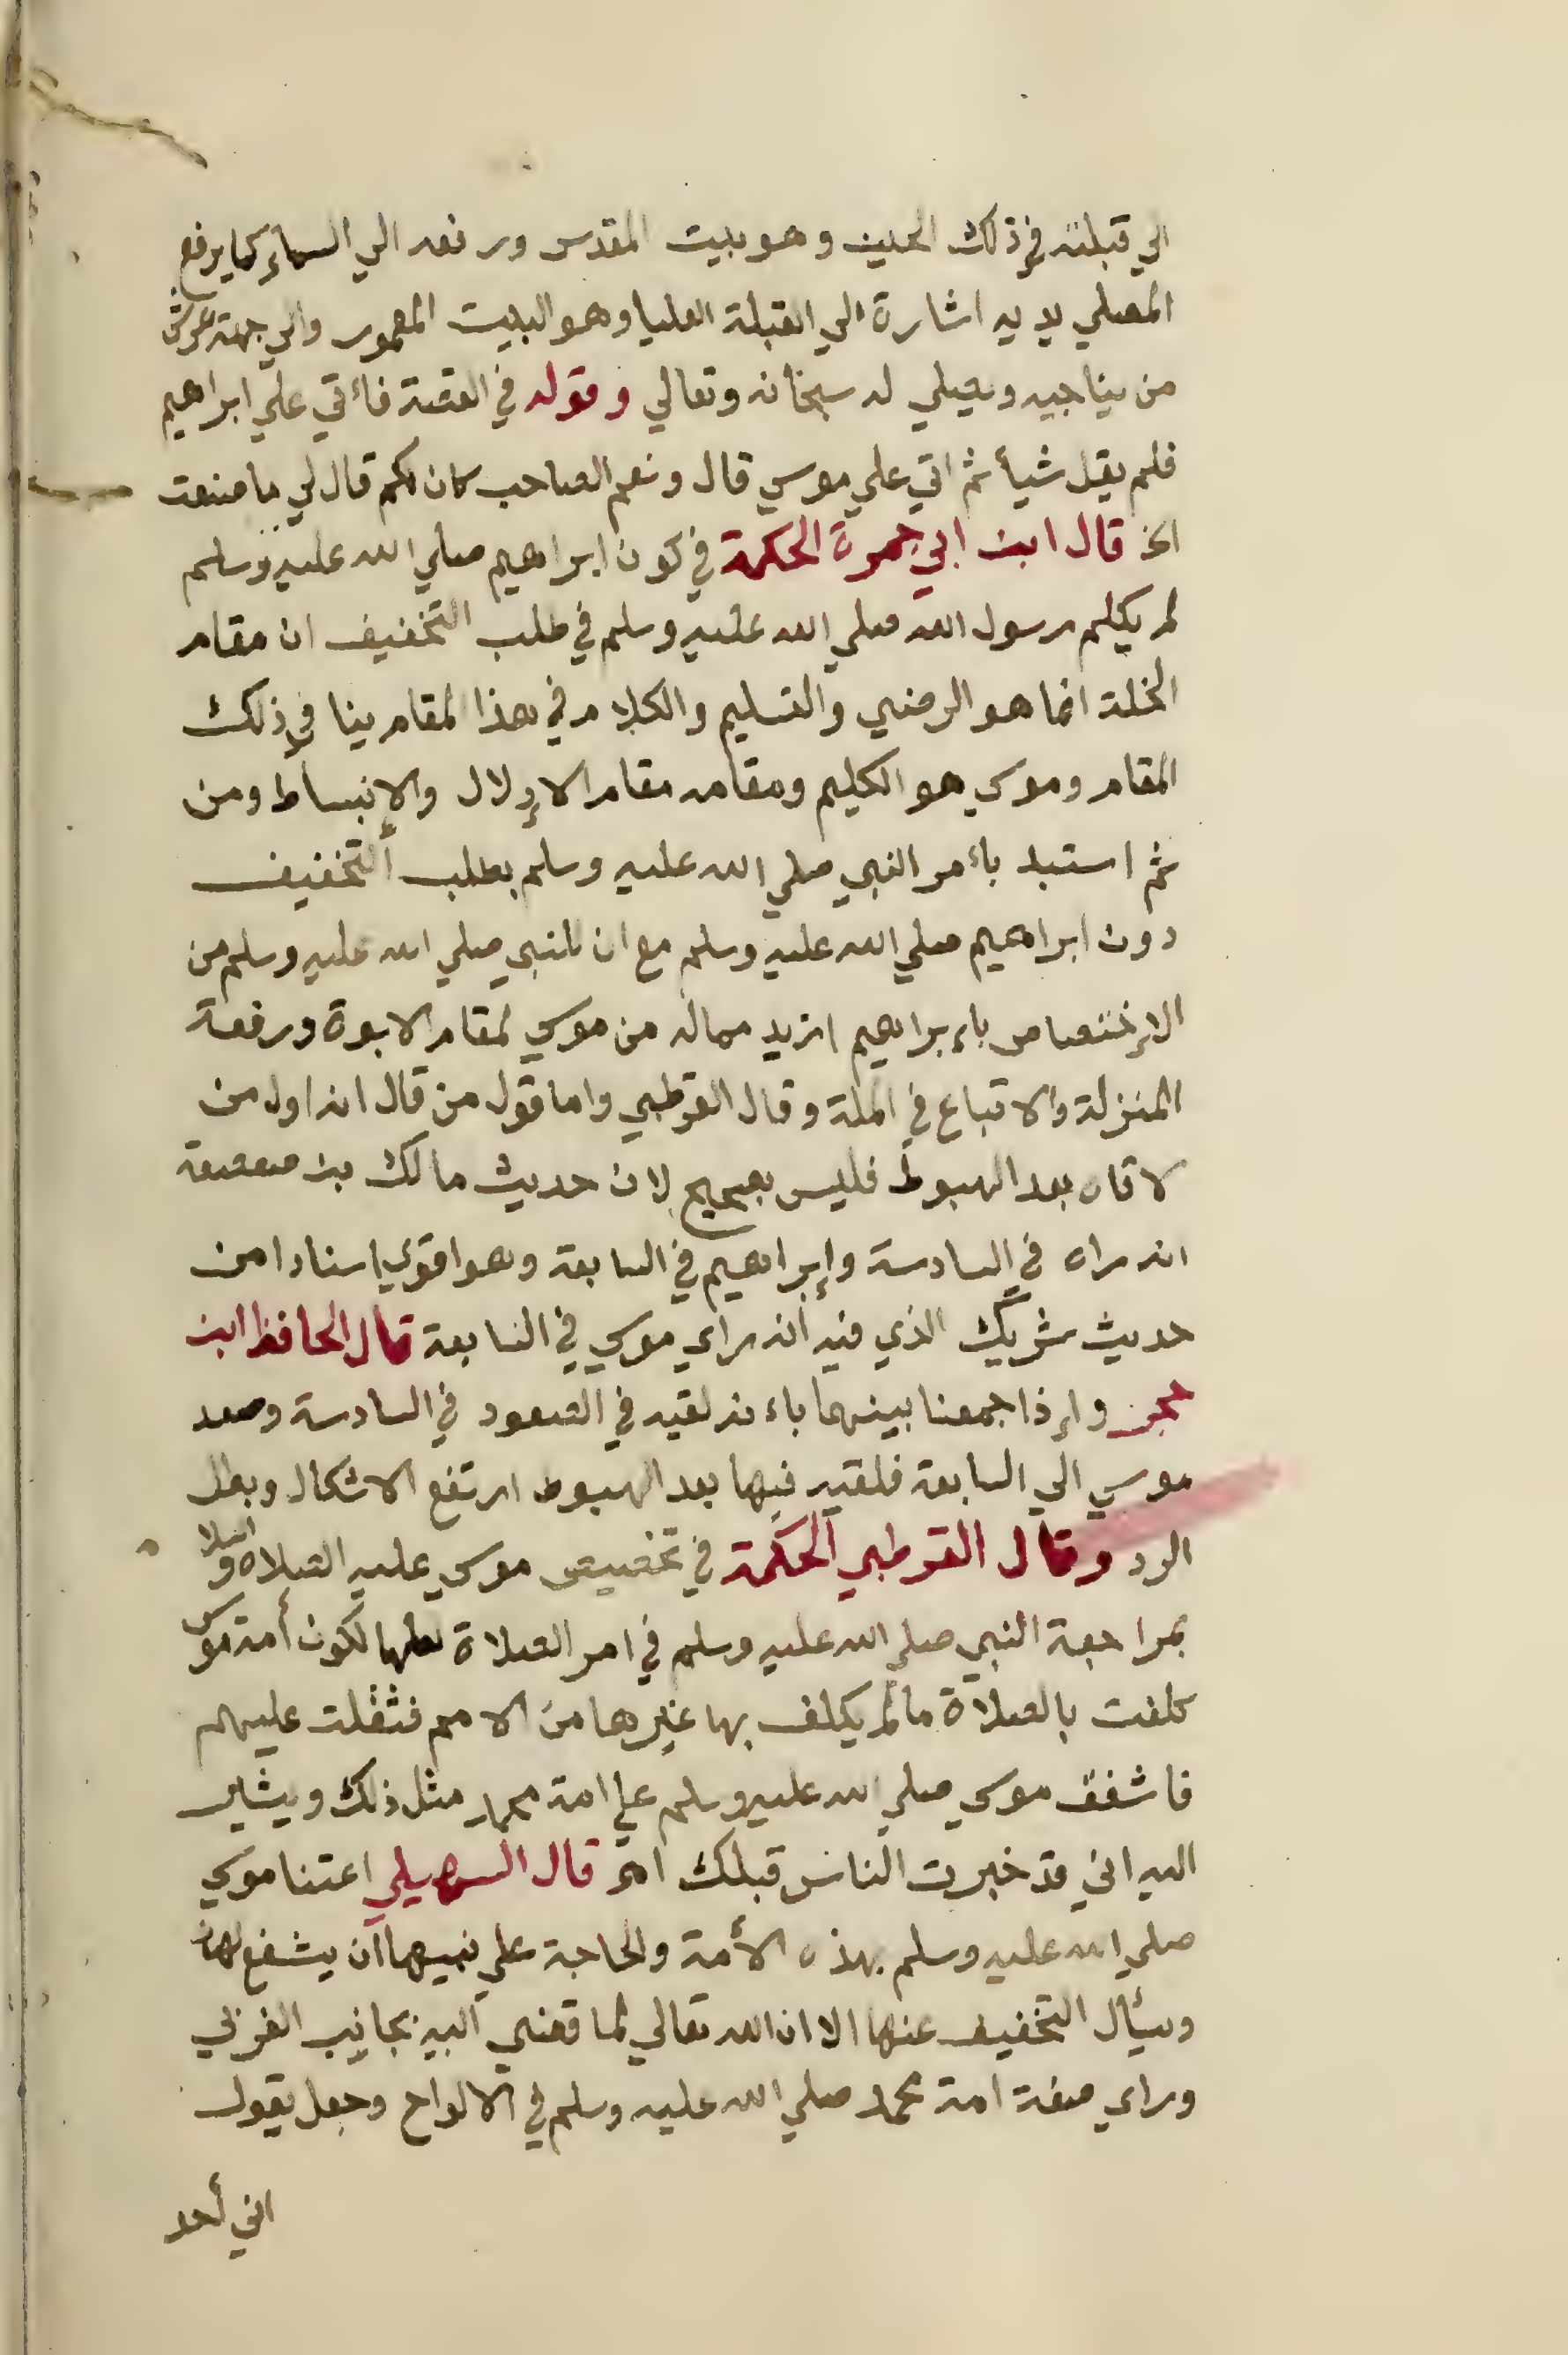 الي قبلته في ذلك الحين وهو بيت المقدس ورفعه الي السماء كما يرفع
المصلي يديه اشارة الي القبلة العليا وهو البيت المعمور والي جهة عرش
من يناجيه ويصلي له سبحانه وتعالي وقوله في القصة فأتي علي ابراهيم
فلم يقل شيأ ثم اتي علي موسي قال ونعم الصاحب كان لكم قال لي ما صنعت
الخ قال ابن ابي جمرة الحكمة في كون ابراهيم صلي الله عليه وسلم
لم يكلم رسول الله صلي الله عليه وسلم في طلب التخفيف ان مقام
الخلة انما هو الرضي والتسليم والكلام في هذا المقام ينافي ذلك
المقام وموسي هو الكليم ومقامه مقام الإدلال والانبساط ومن
ثم استبد بأمر النبي صلي الله عليه وسلم بطلب التخفيف
دون ابراهيم صلي الله عليه وسلم مع ان للنبي صلي الله عليه وسلم من
الإختصاص بإبراهيم ازيد مماله من موسي لمقام الابوة ورفعة
المنزلة والاتباع في الملة وقال القرطبي واما قول من قال انه اول من
لاقاه بعد الهبوط فليس بصحيح لان حديث مالك بن صعصعة
انه راه في السادسة وإبراهيم في السابعة وهو اقوي إسنادا من
حديث شريك الذي فيه انه راي موسي في السابعة قال الحافظ ابن
حجر وإذا جمعنا بينهما بأنه لقيه في الصعود في السادسة وصعد
موسي الي السابعة فلقيه فيها بعد الهبوط ارتفع الاشكال وبطل
الرد وقال القرطبي الحكمة في تخصيص موسي عليه الصلاه و
بمراجعة النبي صلي الله عليه وسلم في امر الصلاة لعلها لكون أمة موسي
كلفت بالصلاة ما لم يكلف بها غيرها من الامم فثقلت عليهم
فاشفق موسي صلي الله عليه وسلم علي امة محمد مثل ذلك ويشير
اليه اني قد خبرت الناس قبلك اهـ قال السهيلي اعتنا موسي
صلي الله عليه وسلم بهذه الأمة والحاجة علي نبيها أن يشفع لها
ويسأل التخفيف عنها الا ان الله تعالي لما قضي اليه بجانب الغربي
وراي صفة امة محمد صلي الله عليه وسلم في الالواح وجعل يقول
اني أجد